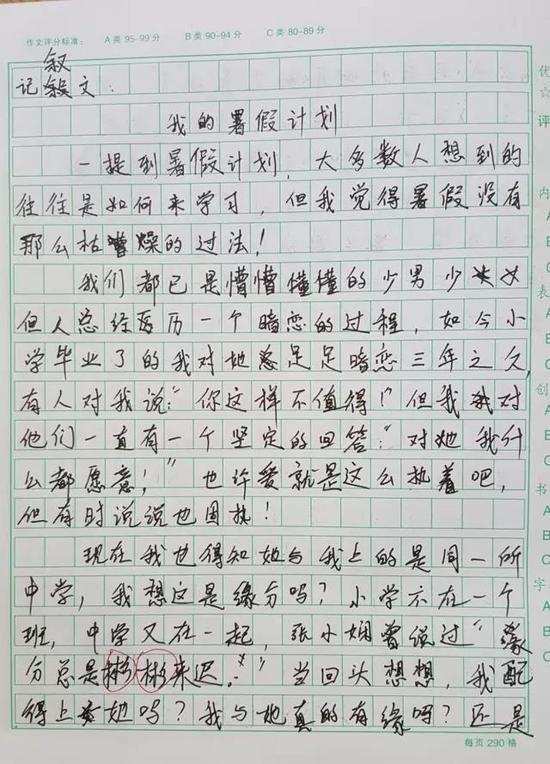 作文评分标准: A类 95-99分 B类 90-94分 C类 80-89分
叙
记 文:
我的暑假计划
一提到暑假计划，大多数人想到的
往往是如何来学习，但我觉得暑假没有
那么枯燥的过法！
我们都已是懵懵懂懂的少男少女
但人总经历一个暗恋的过程，如今小
学毕业了的我对她足足暗恋三年之久，
有人对我说：“你这样不值得！”但我对
他们一直有一个坚定的回答：“对她我什
么都愿意！”也许爱就是这么执着吧，
但有时说说也固执！
现在我也得知她与我上的是同一所
中学，我想这是缘分吗？小学不在一个
班，中学又在一起，张小娴曾说过“缘
分总是彬彬来迟。”当回头想想，我配
得上她吗？我与她真的有缘吗？还是
每页 290 格
优
☆
评
内
A
B
C
表
A
B
C
创
A
B
C
书
A
B
C
字
A
B